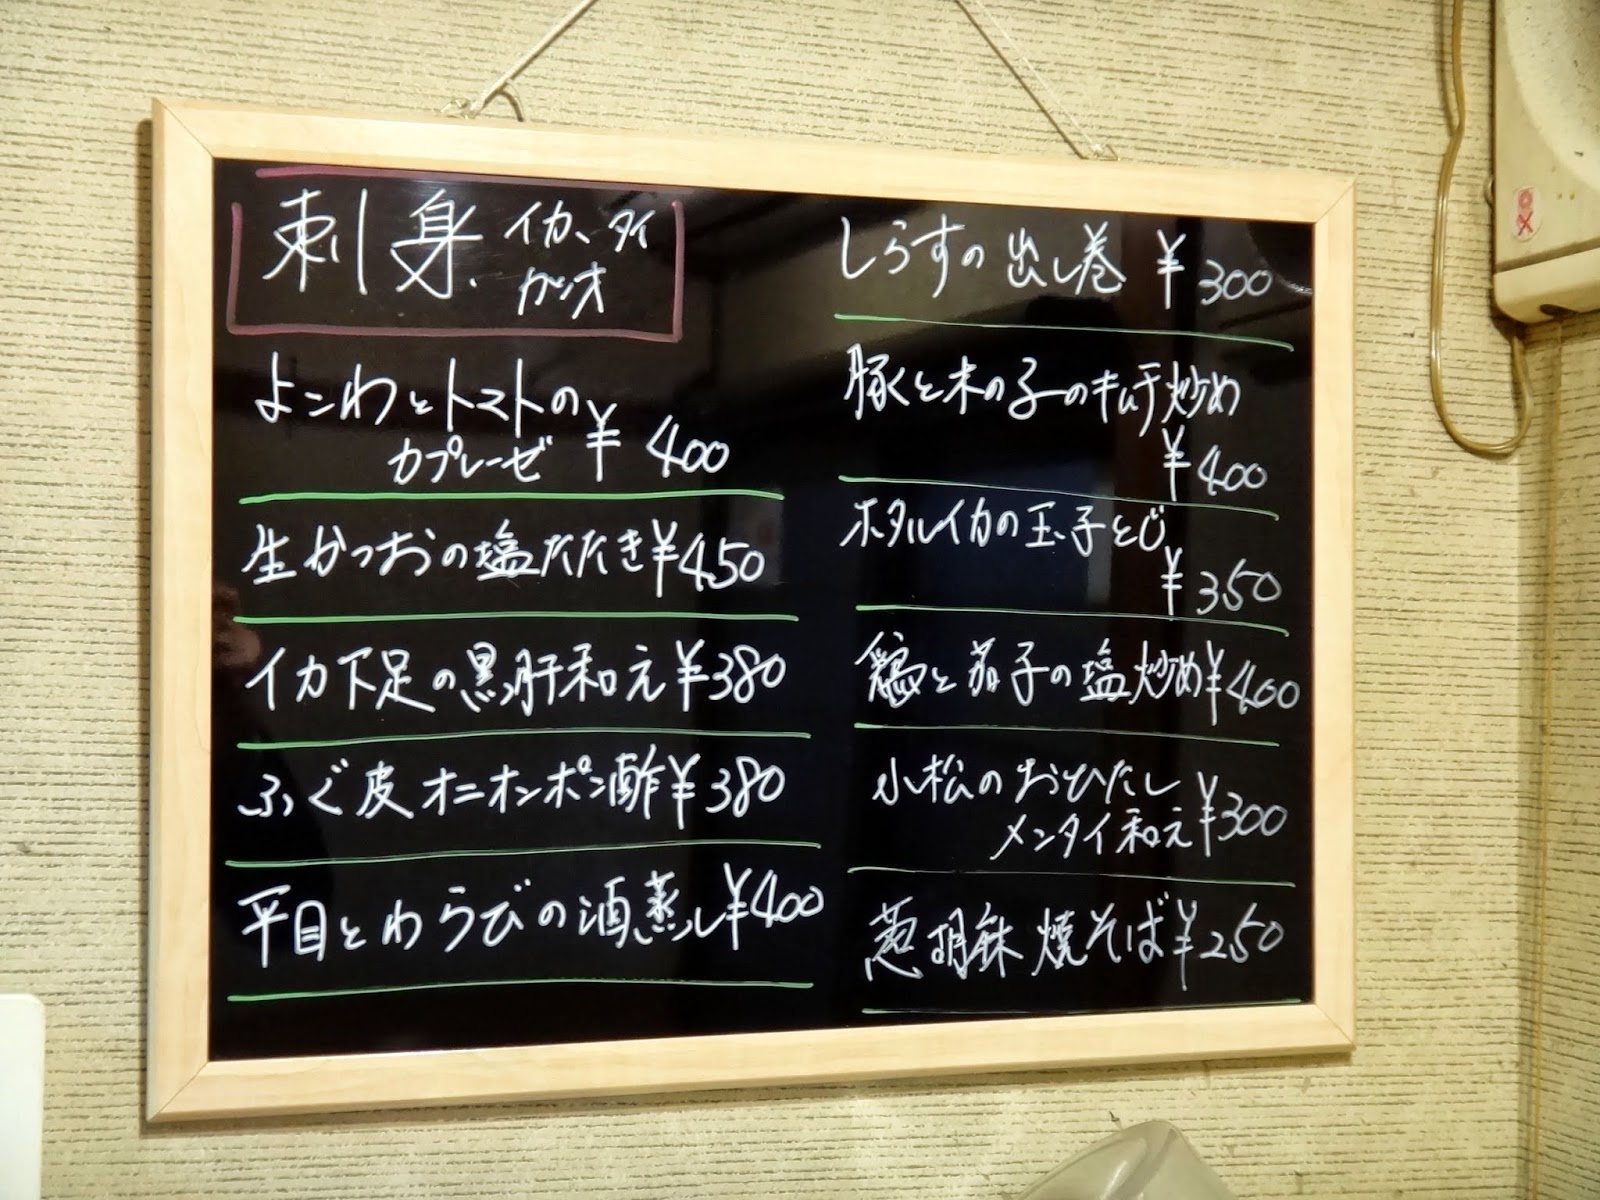 刺身 イカ、タイ
カツオ
よこわとトマトの
カプレーゼ ¥400
生かつおの塩たたき ¥450
イカ下足の黒肝和え ¥380
ふぐ皮オニオンポン酢 ¥380
平目とわらびの酒蒸し ¥400
しらすの出し巻 ¥300
豚くと木の子のキムチ炒め
¥400
ホタルイカの玉子とじ
¥350
鶏と茄子の塩炒め ¥400
小松のおひたし
メンタイ和え ¥300
葱胡麻焼そば ¥250